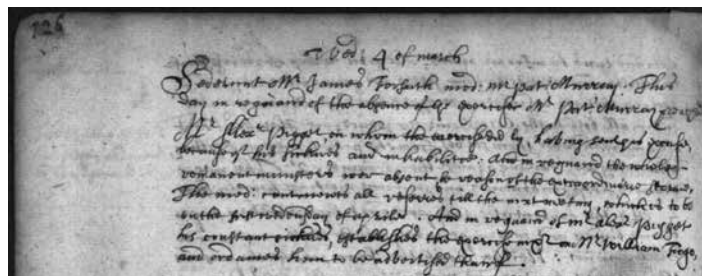 126
Wed: 4 of march
Sederunt Mr James forsyth mod: mr pat: Murray. This
day in regaird of the absence of the exerciser Mr Pat: Murray
Mr Alexr Pigget on whom the exercise lay, having
his sicknes and inhabilitie. And in regaird the whole
remanent ministers wer absent be reason of the extraordinarie storme,
The mod: continewes all referres till the nixt meeting, which is to be
on the first wednesday of aprile. And in regaird of mr Alexr Pigget
his constant sicknes, establishes the exercise nixt on Mr William
and ordaines him to be advertised thairof.